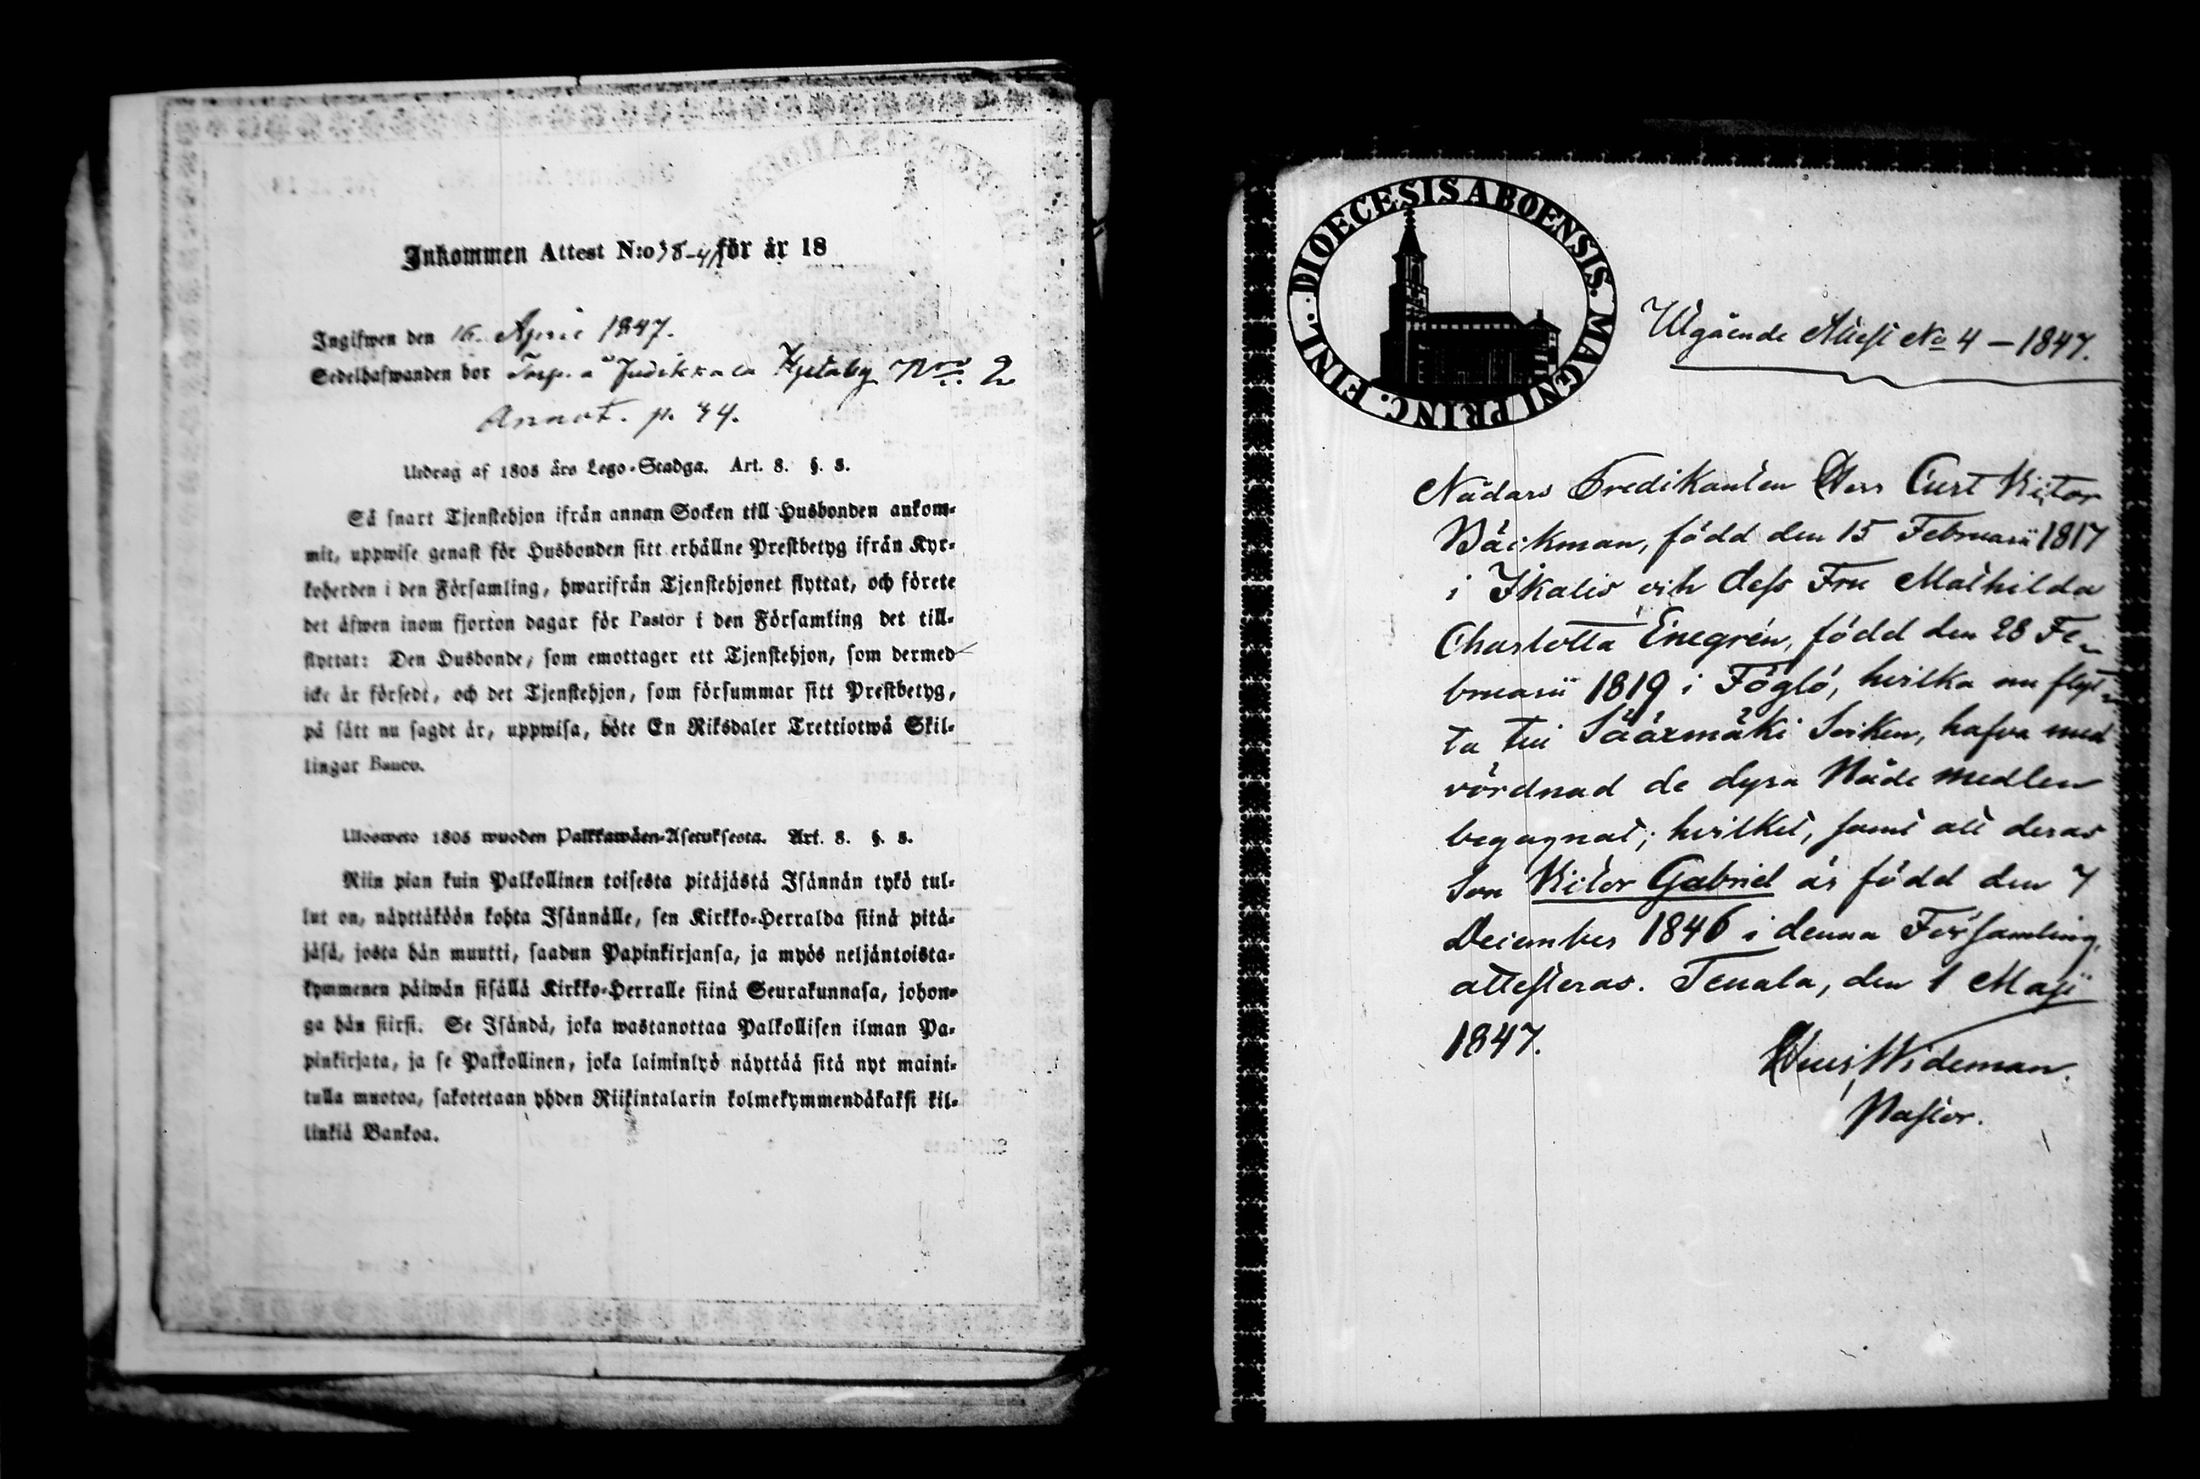 Inkommen Attest N:o 38-41 för år 18
Ingifwen den 16. April 1847.
Sedelhafwanden bor Torp. å Judikkala Kjetaby Nro 2
Annot. p. 44.
Utdrag af 1805 års Lego-Stadga. Art. 8. §. 3.
Så snart Tjenstehjon ifrån annan Socken till Husbonden ankom-
mit, uppwise genast för Husbonden sitt erhållne Prestbetyg ifrån Kyr-
koherden i den Församling, hwarifrån Tjenstehjonet flyttat, och förete
det äfwen inom fjorton dagar för Pastor i den Församling det till-
flyttat: Den Husbonde, som emottager ett Tjenstehjon, som dermed
icke är försedt, och det Tjenstehjon, som försummar sitt Prestbetyg,
på sätt nu sagdt är, uppwisa, böte En Riksdaler Trettiotwå Skil-
lingar Banco.
Ulosweto 1805 wuoden Palkkawäen-Asetuksesta. Art. 8. §. 3.
Niin pian kuin Palkollinen toisesta pitäjästä Isännän tykö tul-
lut on, näyttäköön kohta Isännälle, sen Kirkko-Herralda siinä pitä-
jäsä, josta hän muutti, saadun Papinkirjansa, ja myös neljäntoista-
kymmenen päiwän sisällä Kirkko-Herralle siinä Seurakunnasa, johon-
ga hän siirsi. Se Isändä, joka wastanottaa Palkollisen ilman Pa-
pinkirjata, ja se Palkollinen, joka laiminlyö näyttää sitä nyt maini-
tulla muotoa, sakotetaan yhden Riikintalarin kolmekymmendäkaksi kil-
linkiä Bankoa.
FINL. DIOECESIS ABOENSIS. MAGNI PRINC.
Utgående Attest No 4 – 1847.
Nådars Predikanten Herr Curt Victor
Bäckman, född den 15 Februarii 1817
i Ikalis och dess Fru Mathilda
Charlotta Enegrén, född den 28 Fe-
bruarii 1819 i Föglö, hvilka nu flyt-
ta till Sääxmäki Socken, hafva med
vördnad de dyra Nåde medlen
begagnat; hvilket, samt att deras
Son Victor Gabriel är född den 7
December 1846 i denna Församling,
attesteras. Tenala, den 1 Maji
1847.
Wideman.
Pastor.